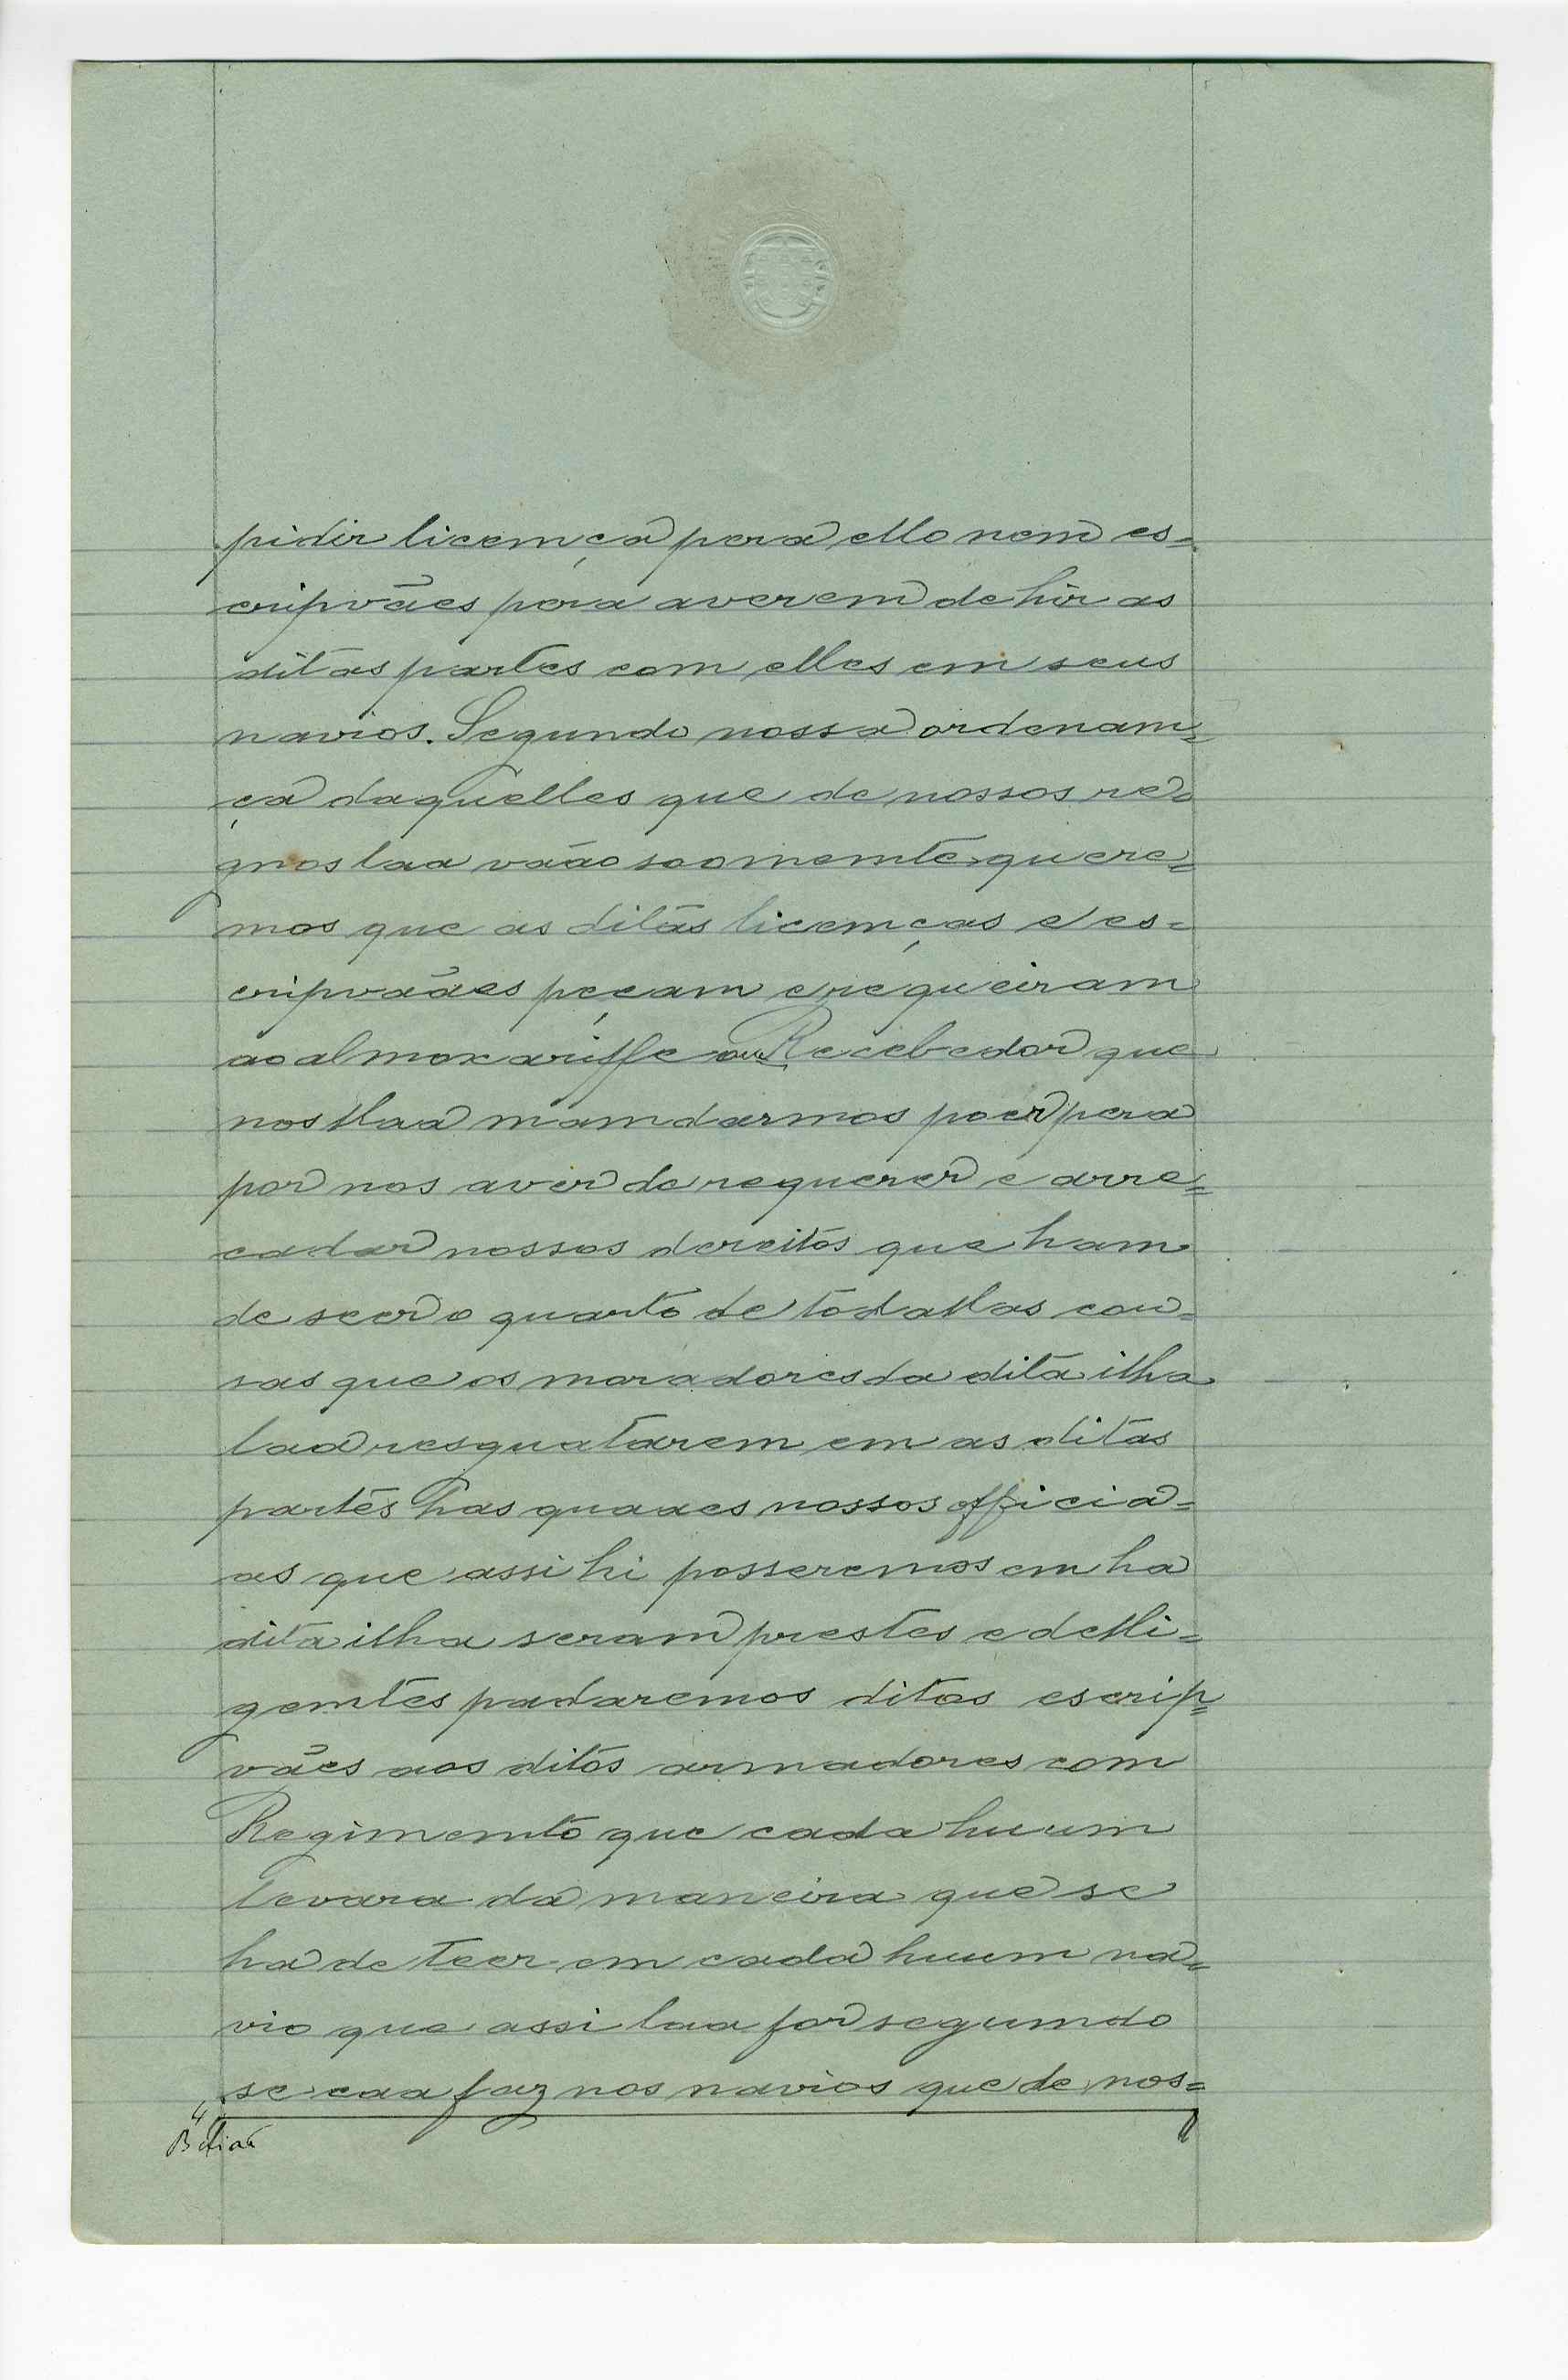 pidir licemça pera ello nem es=
cripvães pera averem de hir as
ditas partes com elles em seus
navios. Segundo nossa ordenam=
ça daquelles que de nossos re=
gnos laa vaão soomemte quere=
mos que as ditas licemças e es=
cripvaães peçam e requeiram
ao almoxariffe ou Recebedor que
nos llaa mamdarmos poer pera
por nos aver de requerer e arre=
cadar nossos dereitos que ham
de seer o quarto de todallas cou=
sas que os moradores da dita ilha
laa resguatarem em as ditas
partes has quaaes nossos officia=
as que assi hi posseremos em ha
dita ilha seram prestes e delli=
gemtes padaremos ditos escrip=
vães aos ditos armadores com
Regimemto que cada huum
levara da maneira que se
ha de teer em cada huum na=
vio que assi laa for segumdo
se caa faz nos navios que de nos=